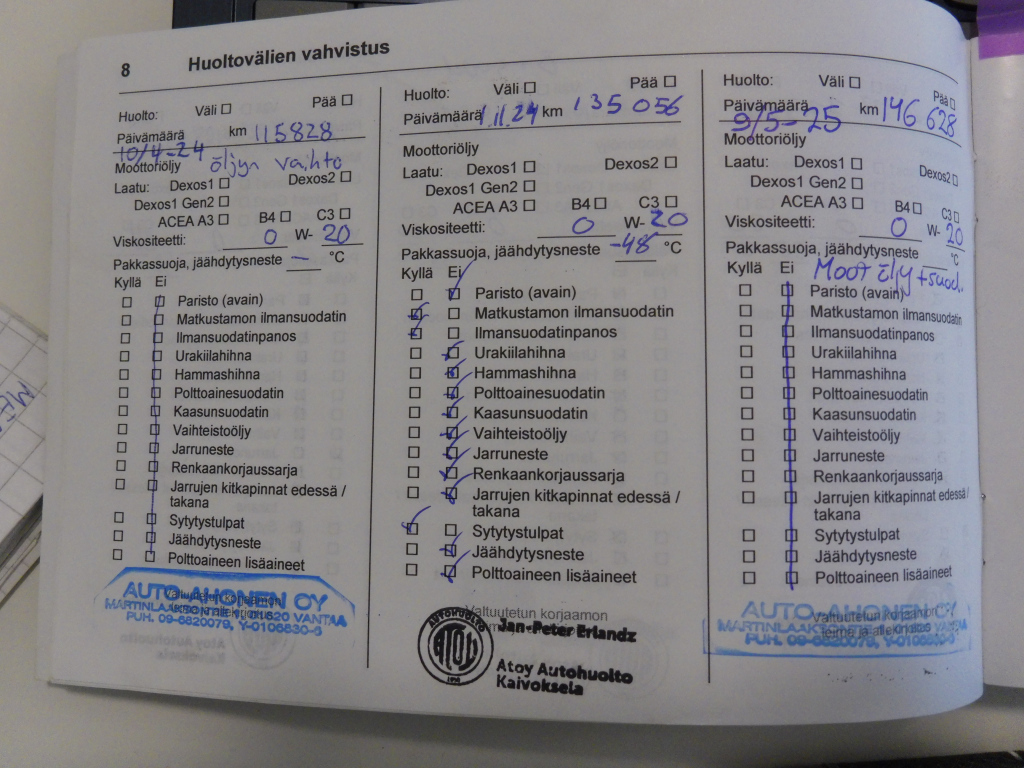 8 Huoltovälien vahvistus
Huolto: Väli Pää
Päivämäärä km 115828
10/4-24
Moottoriöljy öljyn vaihto
Laatu: Dexos1 Dexos2
Dexos1 Gen2
ACEA A3 B4 C3
Viskositeetti: 0 W- 20
Pakkassuoja, jäähdytysneste – °C
Kyllä Ei
Paristo (avain)
Matkustamon ilmansuodatin
Ilmansuodatinpanos
Urakiilahihna
Hammashihna
Polttoainesuodatin
Kaasunsuodatin
Vaihteistoöljy
Jarruneste
Renkaankorjaussarja
Jarrujen kitkapinnat edessä /
takana
Sytytystulpat
Jäähdytysneste
Polttoaineen lisäaineet
Valtuutetun korjaamon
AUTO-AHONEN OY
MARTINLAAKSONTIE 01620 VANTAA
PUH. 09-6820079, Y-0106830-6
Huolto: Väli Pää
Päivämäärä 1.11.24 km 135 056
Moottoriöljy
Laatu: Dexos1 Dexos2
Dexos1 Gen2
ACEA A3 B4 C3
Viskositeetti: 0 W- 20
Pakkassuoja, jäähdytysneste -48 °C
Kyllä Ei
Paristo (avain)
Matkustamon ilmansuodatin
Ilmansuodatinpanos
Urakiilahihna
Hammashihna
Polttoainesuodatin
Kaasunsuodatin
Vaihteistoöljy
Jarruneste
Renkaankorjaussarja
Jarrujen kitkapinnat edessä /
takana
Sytytystulpat
Jäähdytysneste
Polttoaineen lisäaineet
Valtuutetun korjaamon
AUTOHUOLTO
ATOY
Jan-Peter Erlandz
Atoy Autohuolto
Kaivoksela
Huolto: Väli Pää
Päivämäärä km 146 628
9/5-25
Moottoriöljy
Laatu: Dexos1 Dexos2
Dexos1 Gen2
ACEA A3 B4 C3
Viskositeetti: 0 W- 20
Pakkassuoja, jäähdytysneste °C
Kyllä Ei Moot öljy +suod.
Paristo (avain)
Matkustamon ilmansuodatin
Ilmansuodatinpanos
Urakiilahihna
Hammashihna
Polttoainesuodatin
Kaasunsuodatin
Vaihteistoöljy
Jarruneste
Renkaankorjaussarja
Jarrujen kitkapinnat edessä /
takana
Sytytystulpat
Jäähdytysneste
Polttoaineen lisäaineet
AUTO-AHONEN OY
Valtuutetun korjaamon
leima ja allekirjoitus